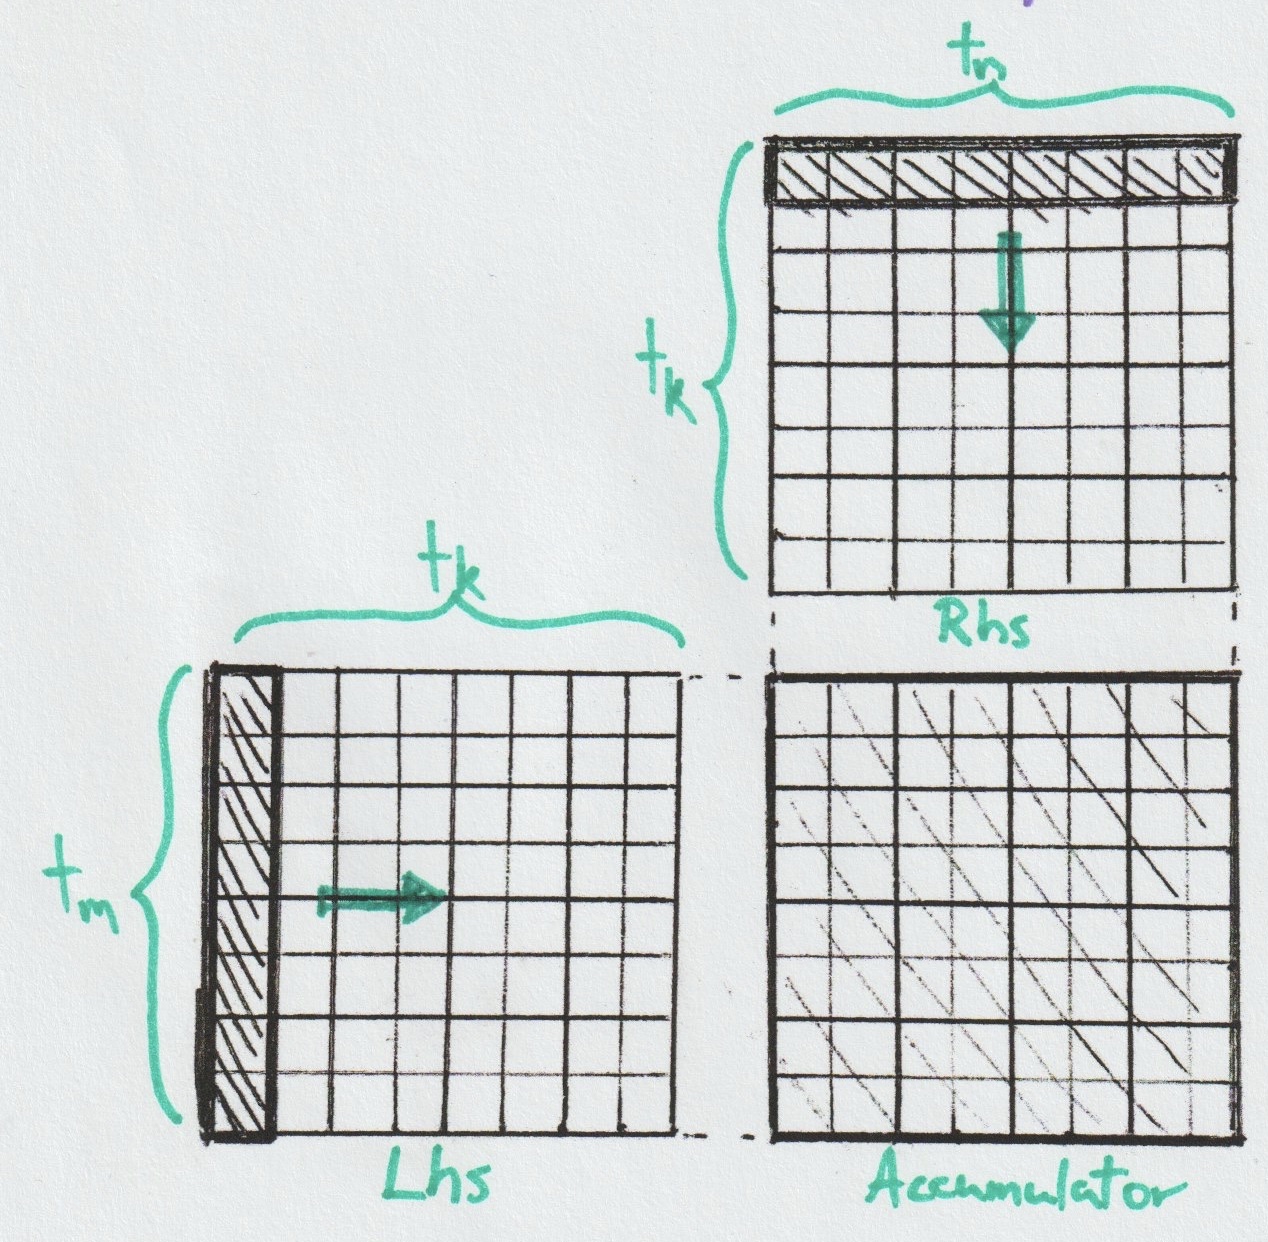 tn
tk
Rhs
tk
tm
Lhs
Accumulator